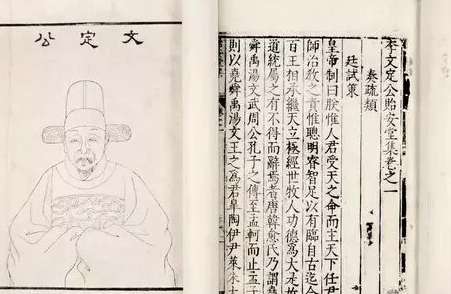 文定公
李文定公貽安堂集卷之一
奏疏類
廷試策
皇帝制曰朕惟人君受天之命而主天下任君
師治教之責惟聰明睿智足以有臨自古迄今
百王相承繼天立極經世牧人功德為大是故
道統屬之有不得而辭焉者唐韓愈氏乃謂堯
舜禹湯文武周公孔子之傳至孟軻而止孟子
則以堯舜禹湯文王之為君臯陶伊尹萊朱太